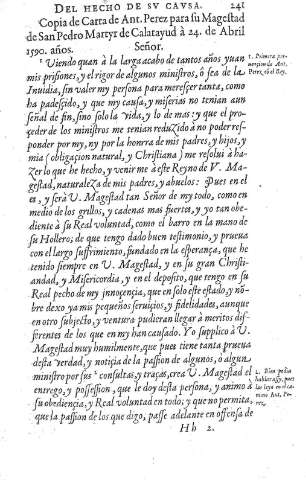 DEL HECHO DE SV CAVSA. 241
Copia de Carta de Ant. Perez para su Magestad
de San Pedro Martyr de Calatayud à 24. de Abril
1590. años. Señor.
¹ Viendo quan à la larga acabo de tantos años yuan
mis prisiones, y el rigor de algunos ministros, ò sea de la
Inuidia, sin valer my persona para meresçer tanta, como
ha padesçido, y que my causa, y miserias no tenian aun
señal de fin, sino solo la vida, y lo de mas: y que el pro-
çeder de los ministros me tenian reduzido à no poder res-
ponder por my, ny por la honrra de mis padres, y hijos, y
mia (obligaçion natural, y Christiana) me resolui à ha-
zer lo que he hecho, y venirme à este Reyno de V. Ma-
gestad, naturaleza de mis padres, y abuelos: Pues en el
es, y serà V. Magestad tan Señor de my todo, como en
medio de los grillos, y cadenas mas fuertes, y yo tan obe-
diente à su Real voluntad, como el barro en la mano de
su Hollero; de que tengo dado buen testimonio, y prueua
con el largo suffrimiento, fundado en la esperança, que he
tenido siempre en V. Magestad, y en su gran Christi-
andad, y Misericordia, y en el deposito, que tengo en su
Real pecho de my innoçençia, que en solo este estado, y nõ-
bre dexo ya mis pequeños seruiçios, y fidelidades, aunque
en otro subjecto, y ventura pudieran llegar à meritos dif-
ferentes de los que en my han causado. Yo supplico à V.
Magestad muy humilmente, que pues tiene tanta prueua
desta verdad, y notiçia de la passion de algunos, ò algun
ministro por sus ² consultas, y traças, crea V. Magestad el
entrego, y possession, que le doy desta persona, y animo à
su obediençia, y Real voluntad en todo; y que no permita,
que la passion de los que digo, passe adelante en offensa de
Hh 2.
1. Primera
de Ant.
Perez, à el Rey.
2. Bien podia
hablar assy, pues
las leya en el ca-
mino Ant. Pe-
rez.